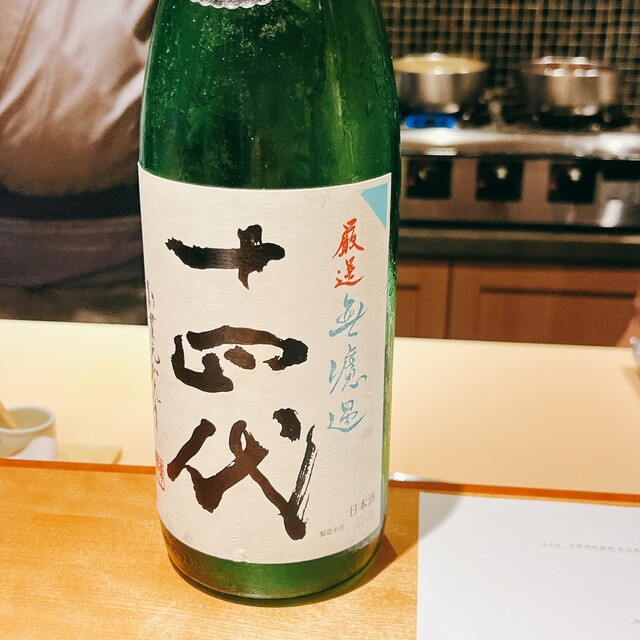 厳選
無濾過
十四代
日本酒
製造年月